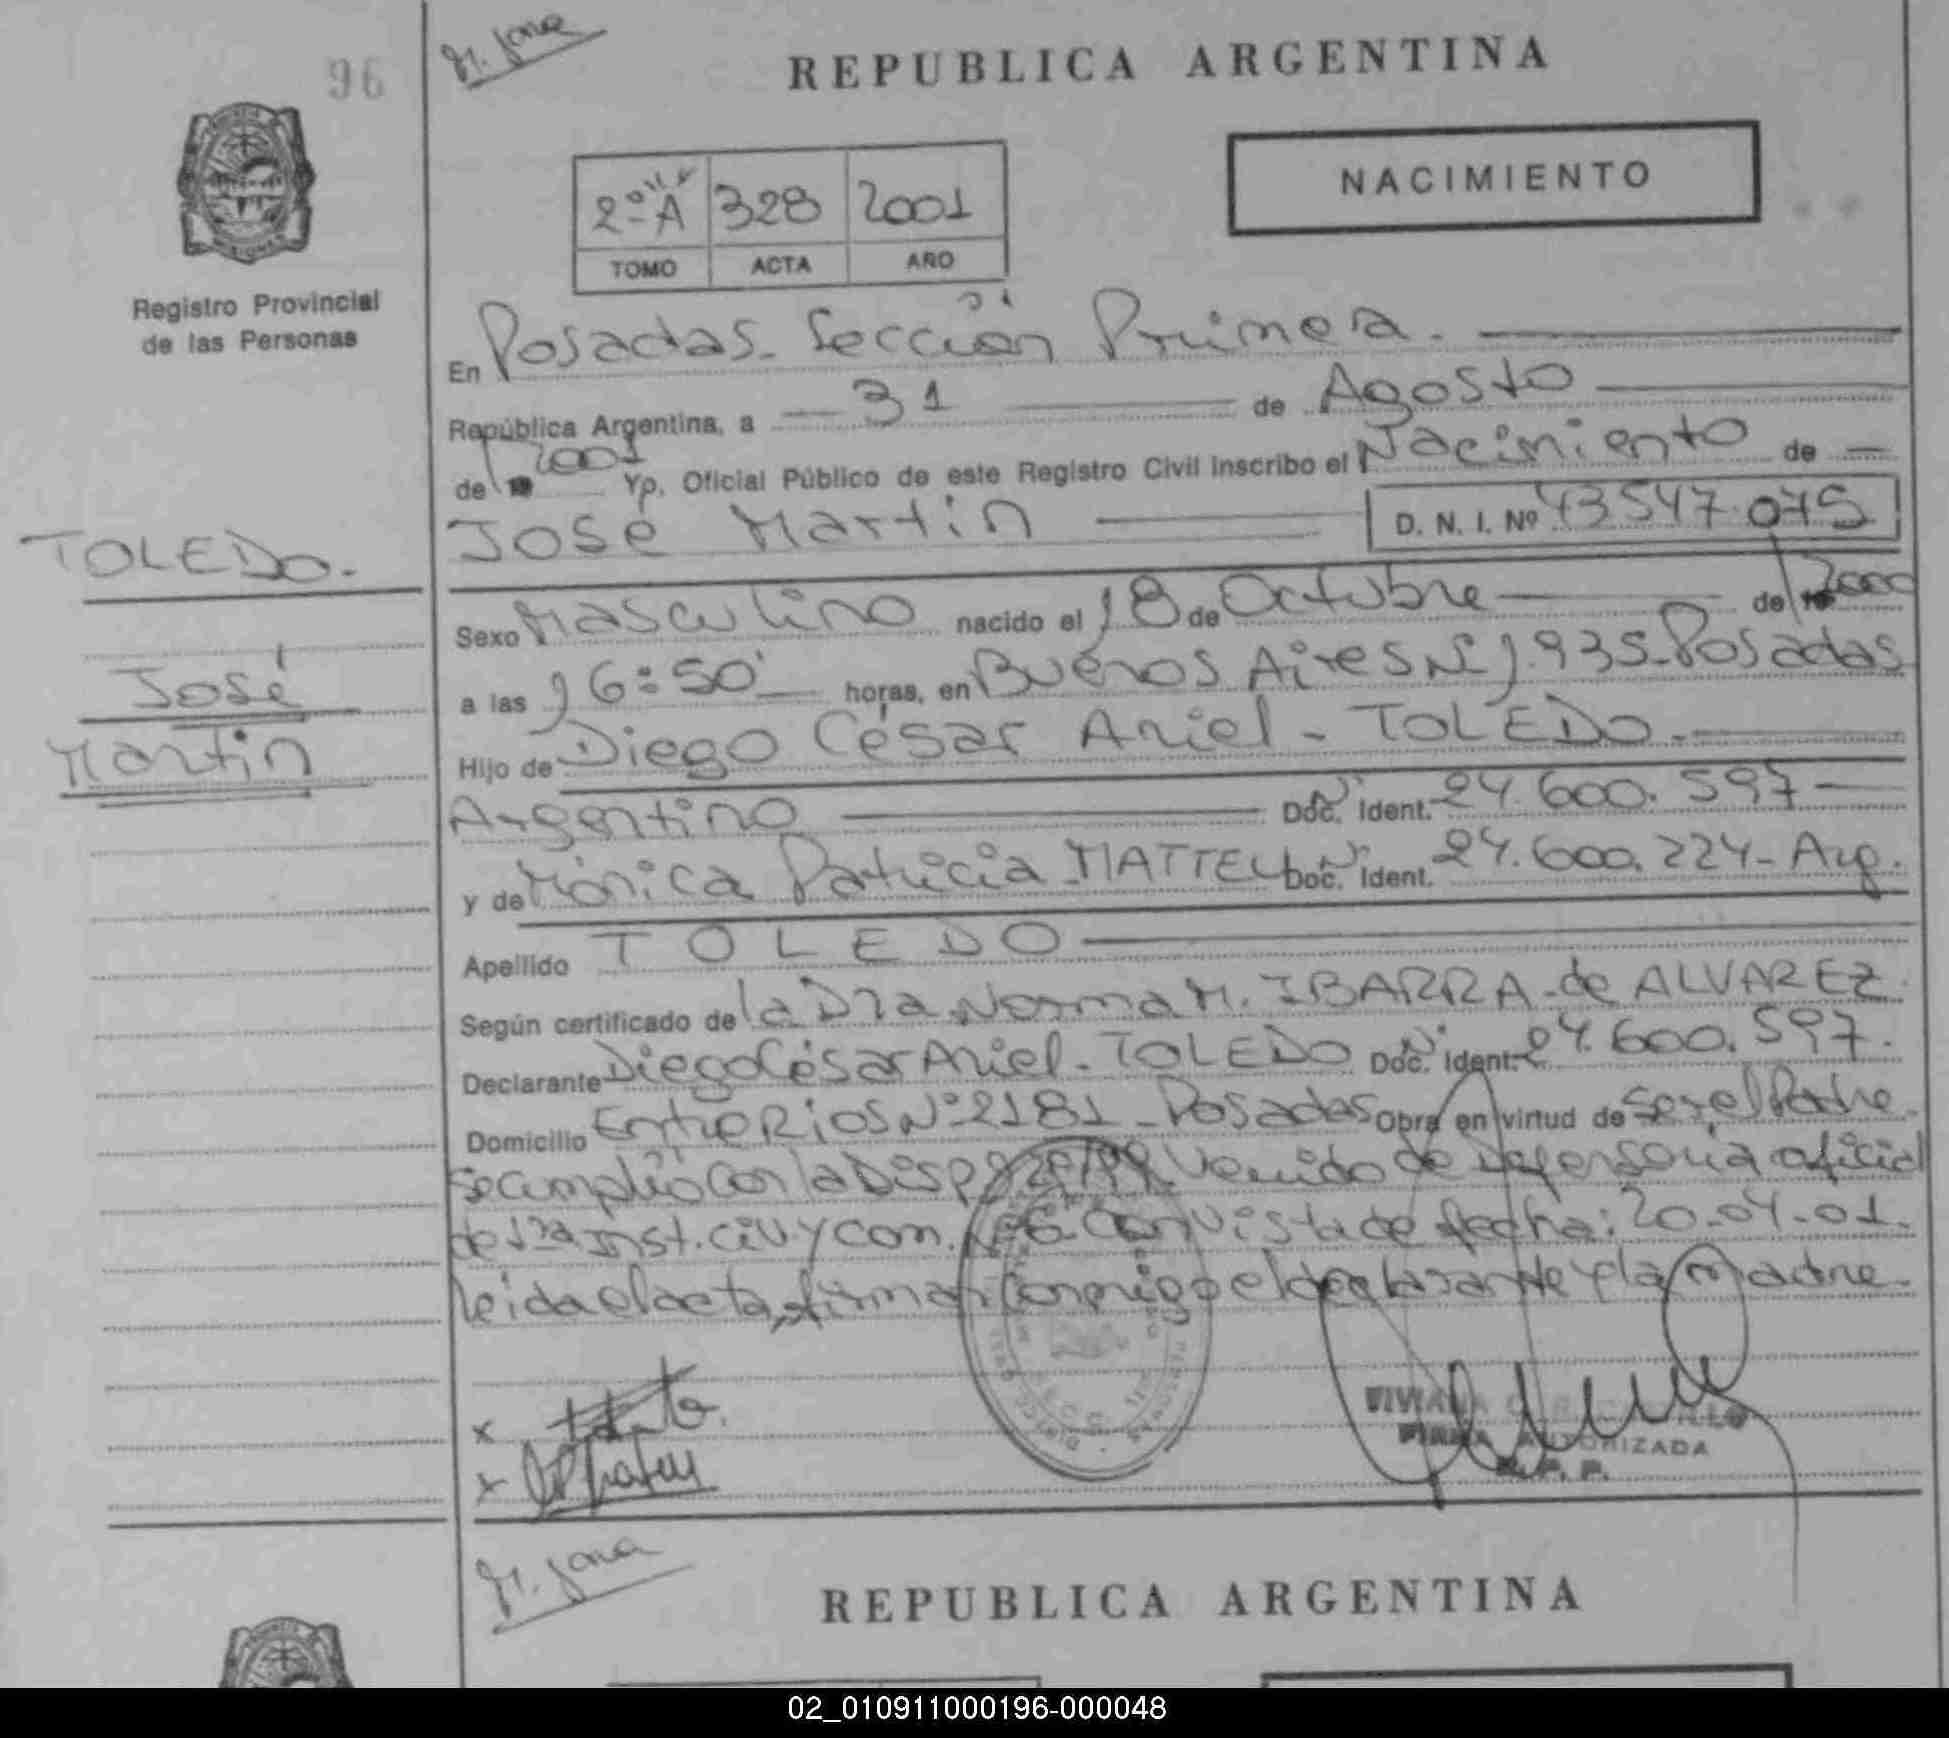 96
M. Jona
REPUBLICA ARGENTINA
NACIMIENTO
2º "A" 328 2001
TOMO ACTA AÑO
Registro Provincial
de las Personas
En Posadas. Sección Primera.
República Argentina, a 31 de Agosto
de 2001 Yo, Oficial Público de este Registro Civil inscribo el Nacimiento de
José Martin D. N. I. Nº 43547.075
TOLEDO.
José
Martin
Sexo Masculino nacido el 18 de Octubre de 2000
a las 16:50' horas, en Buenos Aires Nº 1.935-Posadas
Hijo de Diego César Ariel - TOLEDO.
Argentino Doc. Nº Ident. 24.600.597
y de Mónica Patricia MATTEU Doc. Nº Ident. 24.600.224 - Arg.
Apellido TOLEDO
Según certificado de la Dra Norma M. IBARRA - de ALVAREZ.
Declarante Diego César Ariel - TOLEDO Doc. Nº Ident. 24.600.597.
Domicilio Entre Rios Nº 2181 - Posadas Obra en virtud de Ser el Padre.
Se cumplió con la Disp. Venido de Defensoria oficial
de 1ra Inst. Civ. y Com. Nº 6 Con vista de fecha: 20-04-01.
leida el acta, firman Conmigo el declarante y la madre.
x
x
VIVIANA
FIRMA AUTORIZADA
R. P. P.
M. Jona
REPUBLICA ARGENTINA
02_010911000196-000048